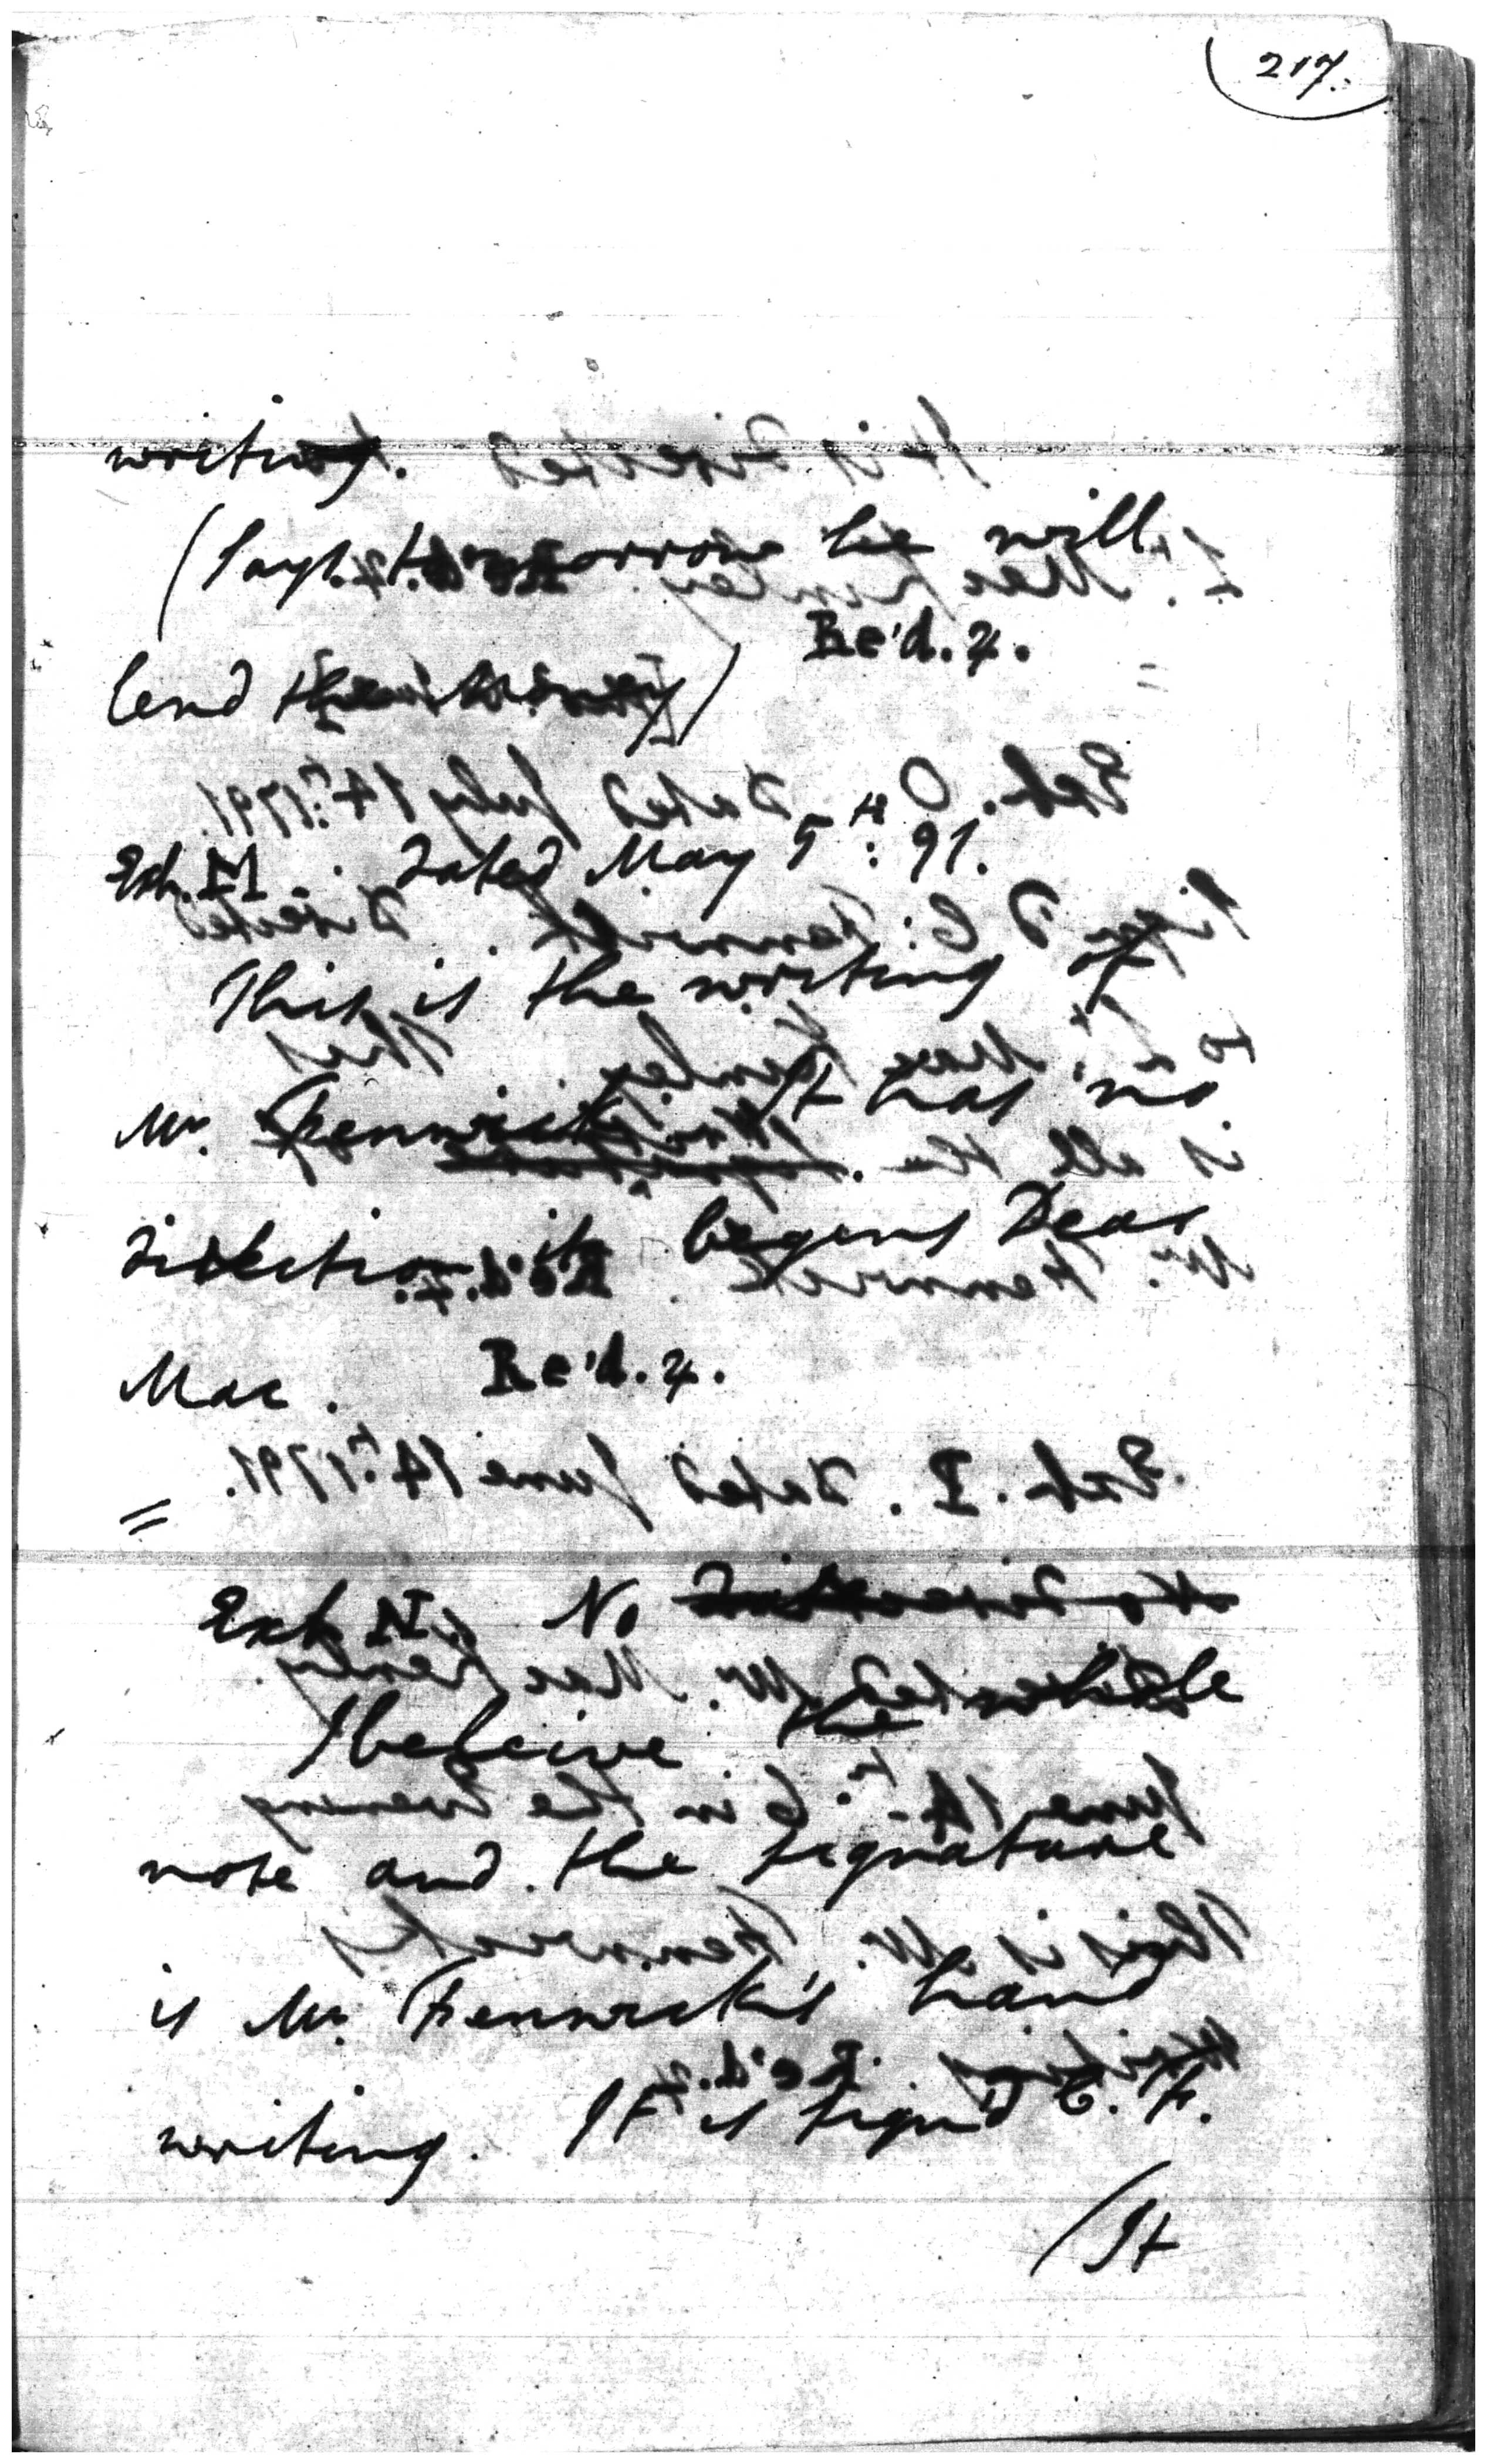 217.
writing.
(Says tomorrow he will
Re'd. 4.
lend the money)
Exh. M. Dated May 5th: 91.
This is the writing of
Mr. Fenwick. It has no
Direction it begins Dear
Mac. Re'd. 4.
=
Exh. N. No Direction
I beleive the whole
note and the signature
is Mr. Fenwick's hand
writing. It is sign'd E. F.
(It